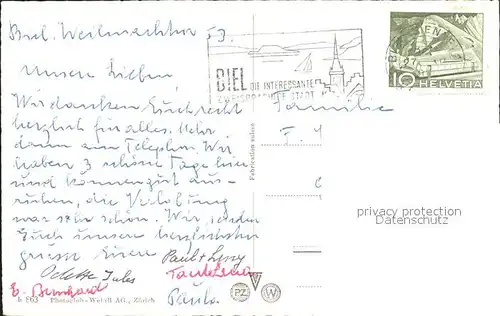 Biel. Weihnachten 53.
Unsere Lieben,
Wir danken Euch recht
herzlich für alles. Mehr
dann am Telephon. Wir
haben 3 schöne Tage hier
und können gut aus-
ruhen, die Verlobung
war sehr schön. Wir senden
Euch unsere herzlichsten
grüsse Eure Paul +
Odette Jules
E. Bernhard
Paula
BIEL DIE INTERESSANTE
ZWEISPRACHIGE STADT
10 HELVETIA
Familie
F. M
Fabrication suisse
privacy protection
Datenschutz
6 863 Photoglob-Wehrli AG., Zürich
PZ W